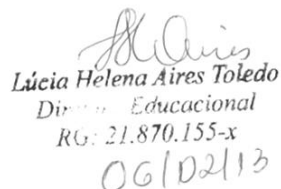 Lúcia Helena Aires Toledo
Educacional
RG: 21.870.155-x
06/02/13